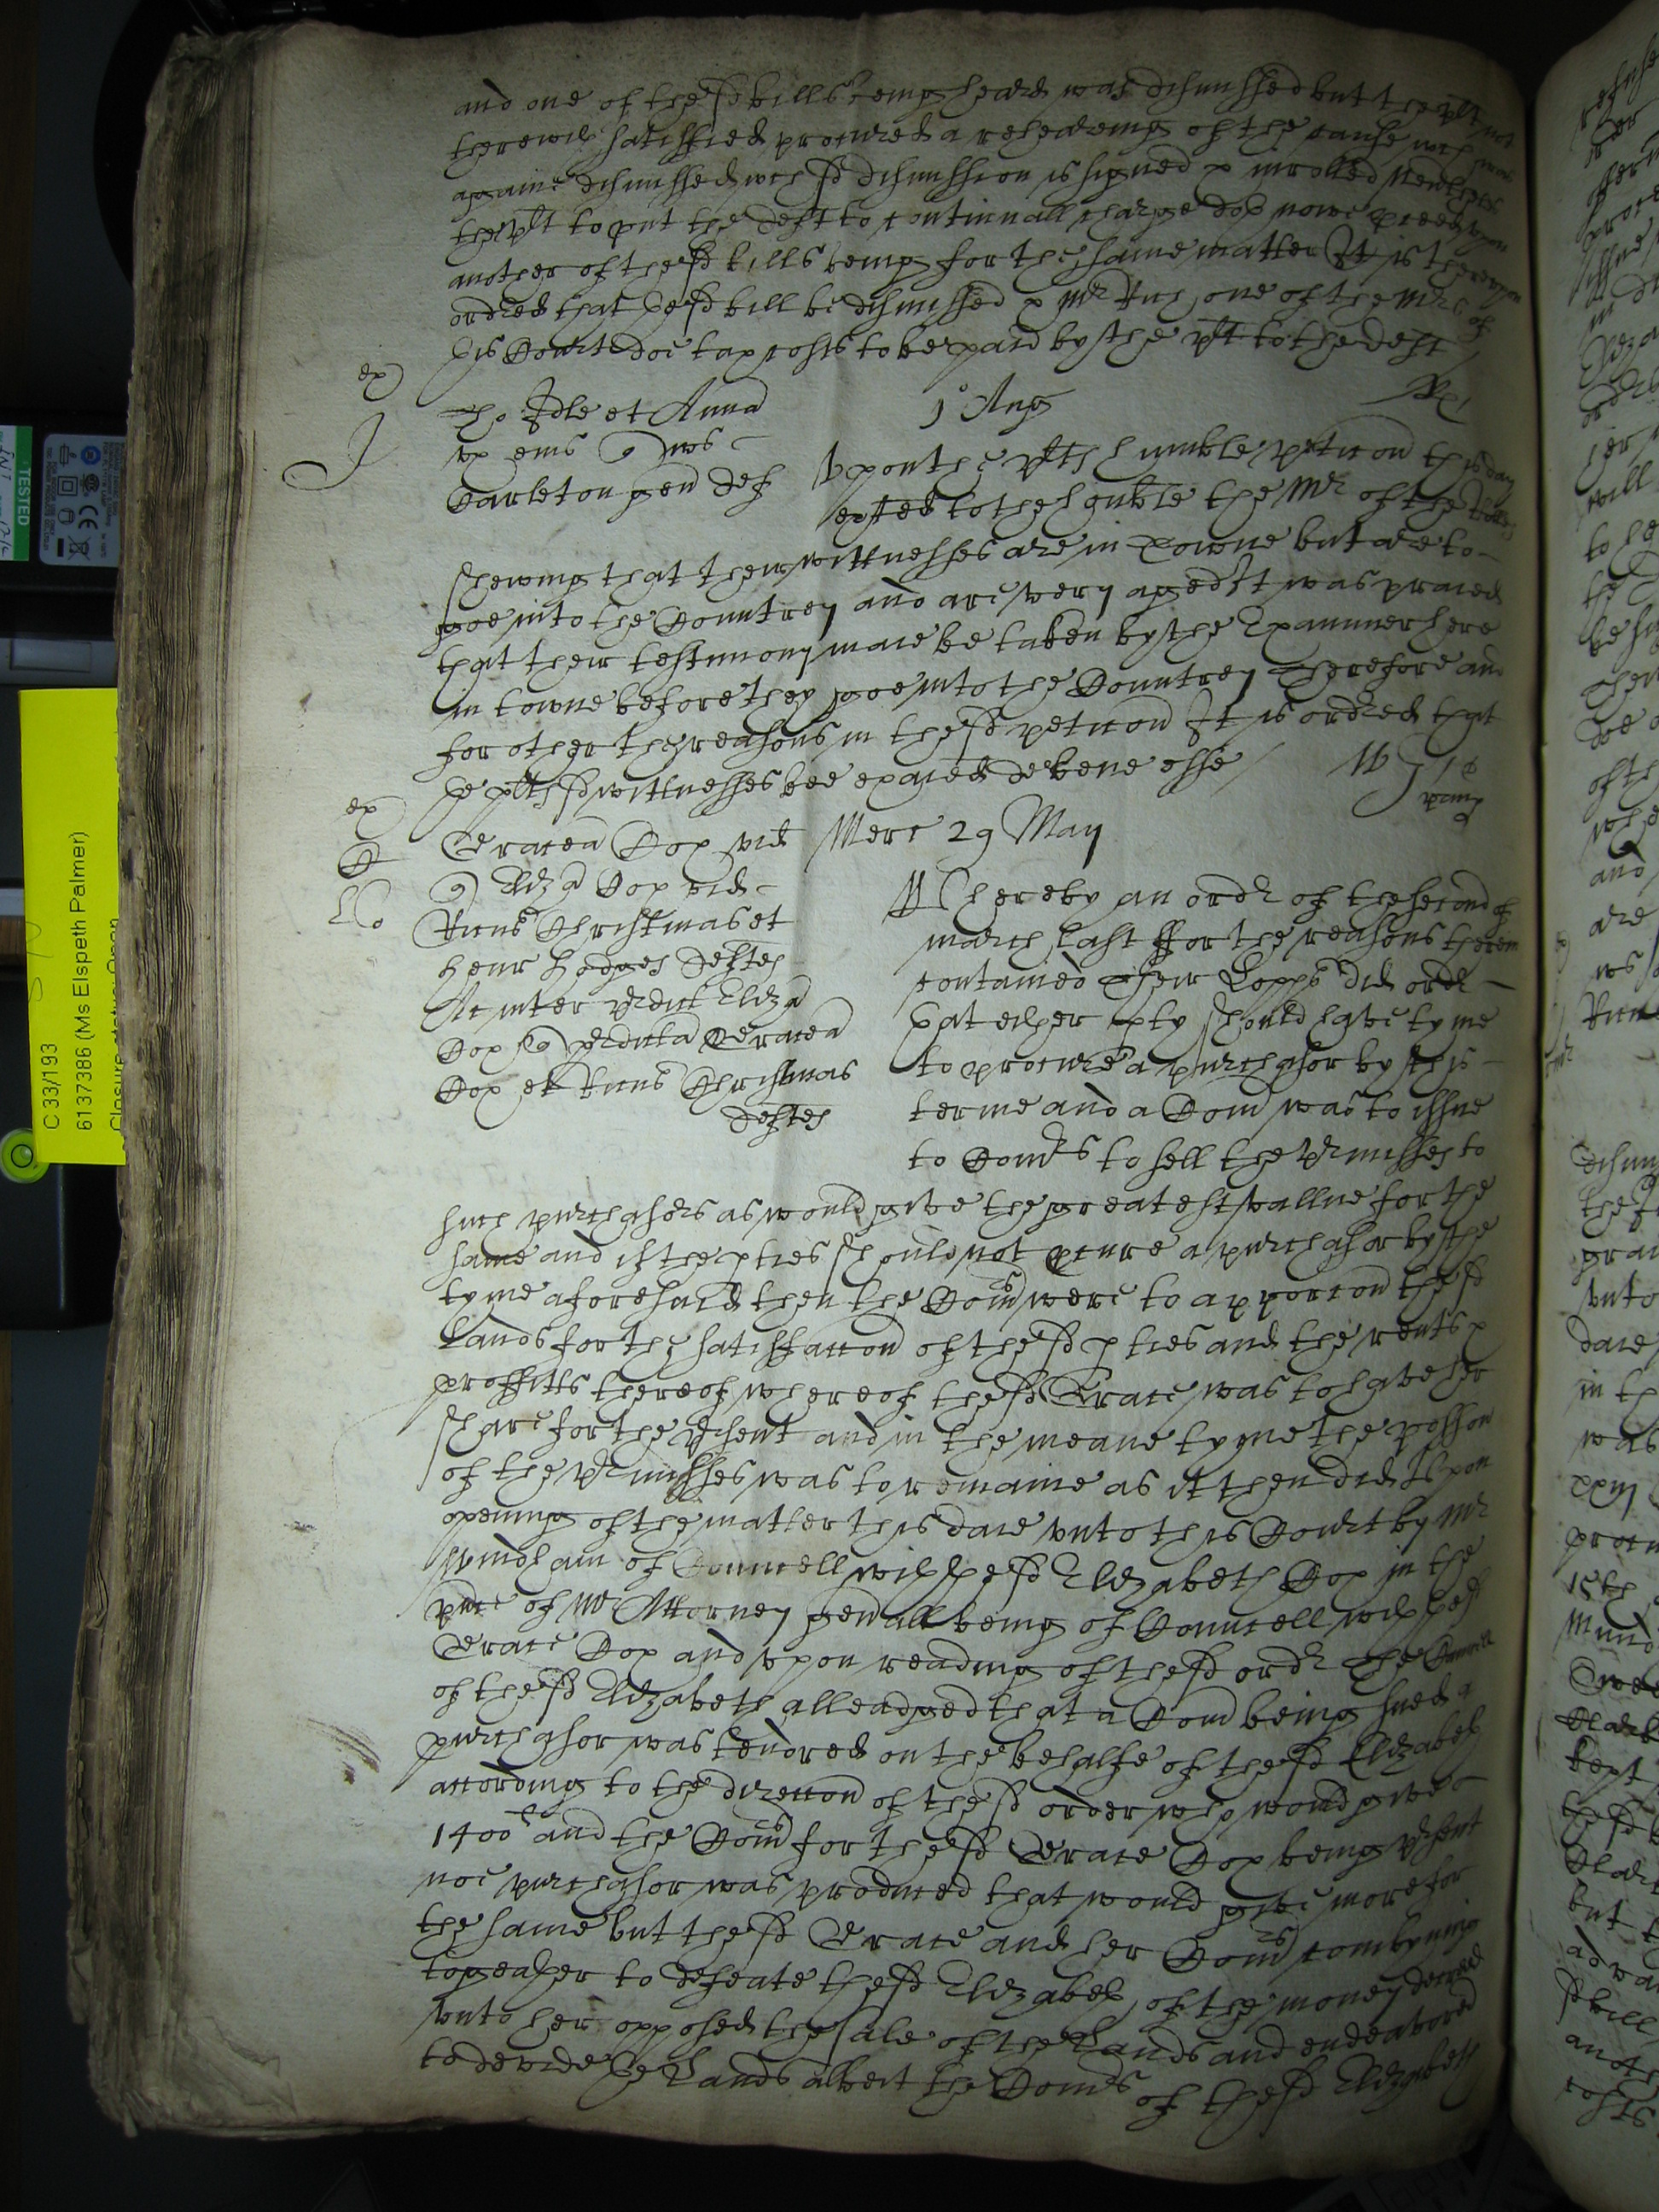 and one of the sd bills being heard was dismissed but the plt not
therewth satisfied procured a rehearing of the cause wch was
againe dismissed wch sd dismission is signed & inrolled
the plt to put the deft to continuall charge doth nowe pceed upon
another of the sd bills being for the same matter It is thereupon
ordred that the sd bill be dismissed & Mr Rich one of the Mrs of
this Court doe tax costs to be paid by the plt to the deft
ex
J
Tho Idle et Anna
ux eius qu
Carleton gen def
1o Aug
Upon the plts humble peticon this day
to the hoble the Mr of the Rolls
shewing that their wittnesses are in towne but are to
goe into the Countrey and are very aged It was praied
that their testimony maie be taken by the Examiner here
in towne before they goe into the Countrey Therefore and
for other the reasons in the sd peticon It is ordred that
the plts sd wittnesses bee exaied de bene esse
ex
C
Gracea Cox vid
qu Eliza Cox vid
Ricus Christmas et
Henr Hodges deftes
Ac inter prdict Eliza
Cox qu prdicta Gracea
Cox et Ricus Christmas
deftes
Merc 29 May
Whereby an ordr of the second of
march last for the reasons therein
contained Their Lopps did ordr
that either pty should have tyme
to procure a purchasor by this
terme and a Com was to issue
to Comrs to sell the prmisses to
such purchasers as would give the greatest vallue for the
same and if the pties should not pcure a purchasor by the
tyme aforesaid then the Comrs were to apporcon the sd
Lands for the satisfaccon of the sd pties and the rents &
proffitts thereof whereof the sd Grace was to have her
share for the prsent and in the meane tyme the possion
of the prmisses was to remaine as it then did Upon
opening of the matter this daie unto this Court by Mr
Windham of Councell with the sd Elizabeth Cox in the
prnce of Mr Attorney genall being of Councell with the sd
Grace Cox and upon reading of the sd ordr The Councell
of the sd Elizabeth alleadged that a Com being sued a
purchasor was tendred on the behalfe of the sd Elizabeth
according to the direccon of the sd order who would give
1400l and the Comrs for the sd Grace Cox being prsent
noe purchasor was produced that would give more for
the same but the sd Grace and her Comrs combyning
togeather to defeate the sd Elizabeth of the money decreed
unto her opposed the sale of the Lands and endeavored
to devide the Lands albeit the Comrs of the sd Elizabeth
TESTED
C 33/193
6137386 (Ms Elspeth Palmer)